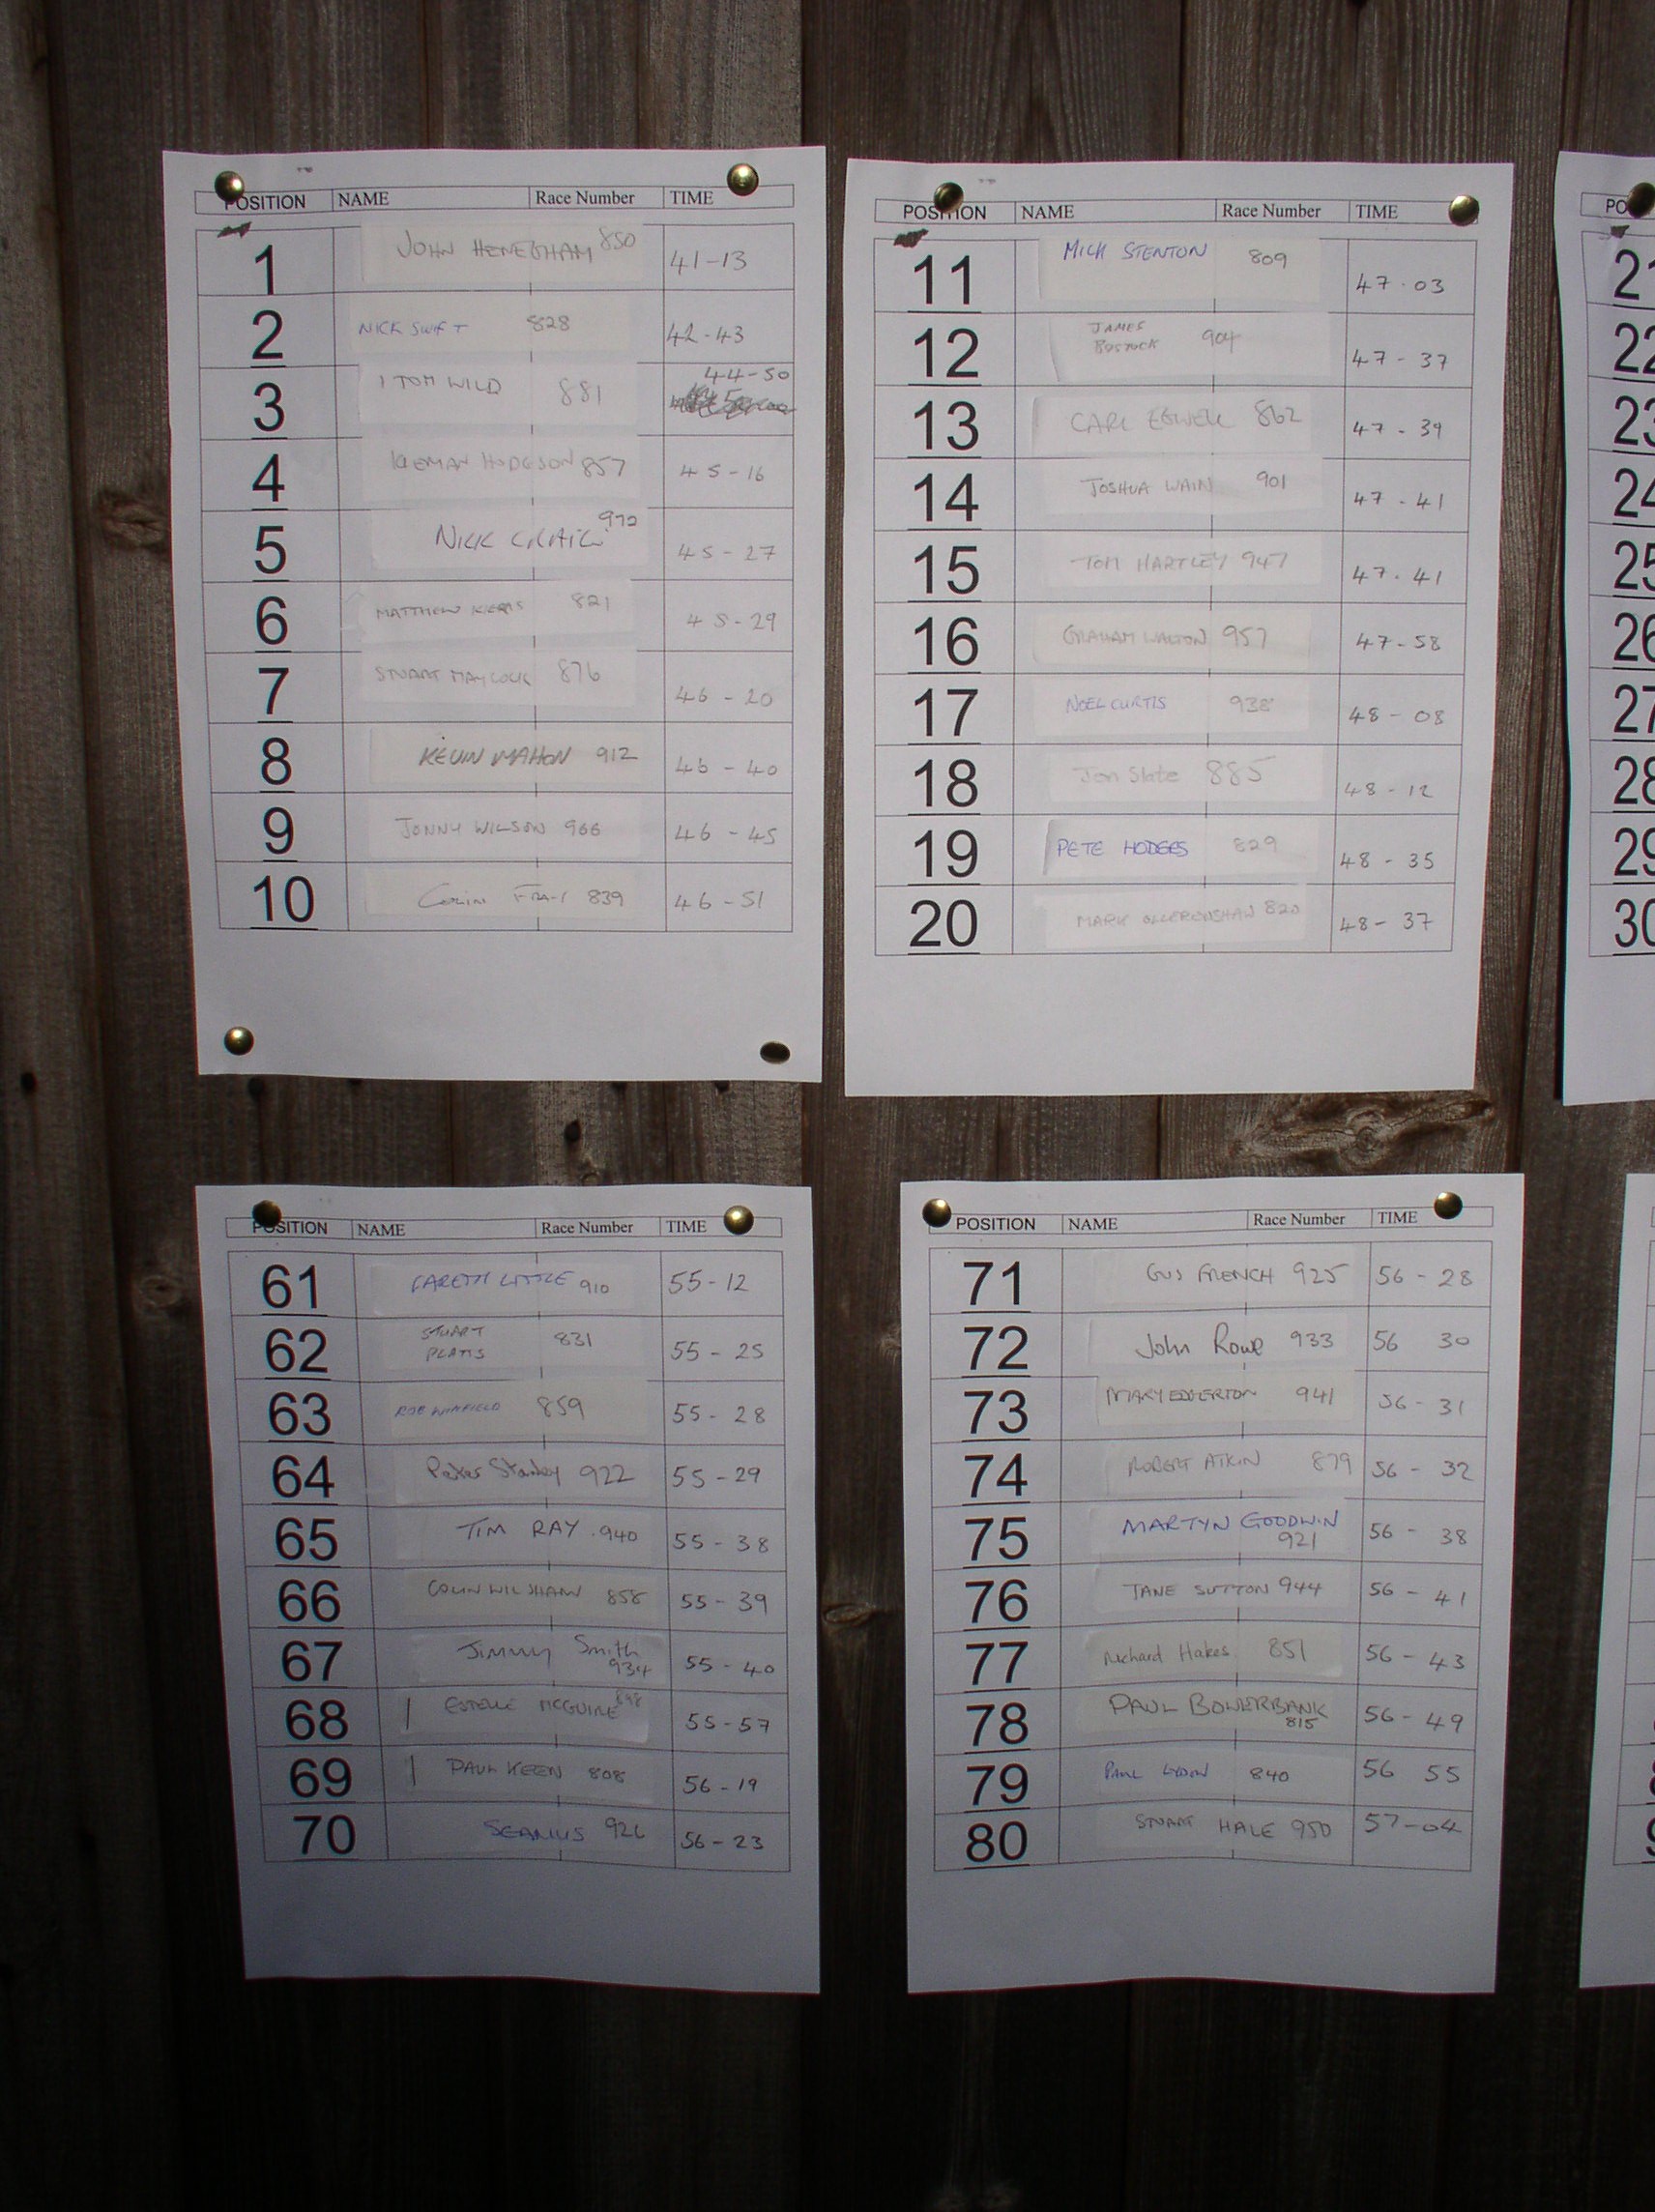 POSITION NAME Race Number TIME
1 JOHN HENEGHAM 850 41-13
2 NICK SWIFT 828 42-43
3 TOM WILD 881 44-50
4 KIERNAN HODGSON 857 45-16
5 NICK CRAIG 970 45-27
6 MATTHEW 821 45-29
7 STUART MAYCOCK 876 46-20
8 KEVIN MAHON 912 46-40
9 JONNY WILSON 966 46-45
10 839 46-51
POSITION NAME Race Number TIME
11 MICK STENTON 809 47.03
12 JAMES BOSTOCK 904 47-37
13 CARL 862 47-39
14 JOSHUA WAIN 901 47.41
15 TOM HARTLEY 947 47.41
16 GRAHAM WALTON 957 47-58
17 NOEL CURTIS 938 48-08
18 Jon Slate 885 48-12
19 PETE HODGES 829 48-35
20 MARK OLLERENSHAW 820 48-37
22
23
24
25
26
27
28
29
30
POSITION NAME Race Number TIME
61 GARETH LITTLE 910 55-12
62 STUART
PLATTS 831 55-25
63 ROB WINFIELD 859 55-28
64 Peter Stanley 922 55-29
65 TIM RAY 940 55-38
66 COLIN WILSHAW 858 55-39
67 JIMMY Smith 934 55-40
68 ESTELLE MCGUIRE 898 55-57
69 PAUL KEEN 808 56-19
70 SEAMUS 56-23
POSITION NAME Race Number TIME
71 GUS FRENCH 925 56-28
72 John Rowe 933 56 30
73 MARY EDGERTON 941 56-31
74 ROBERT ATKIN 879 56-32
75 MARTYN GOODWIN
921 56-38
76 JANE SUTTON 944 56-41
77 Richard Hakes 851 56-43
78 PAUL BOWERBANK
815 56-49
79 PAUL LYDON 840 56 55
80 STUART HALE 950 57-04